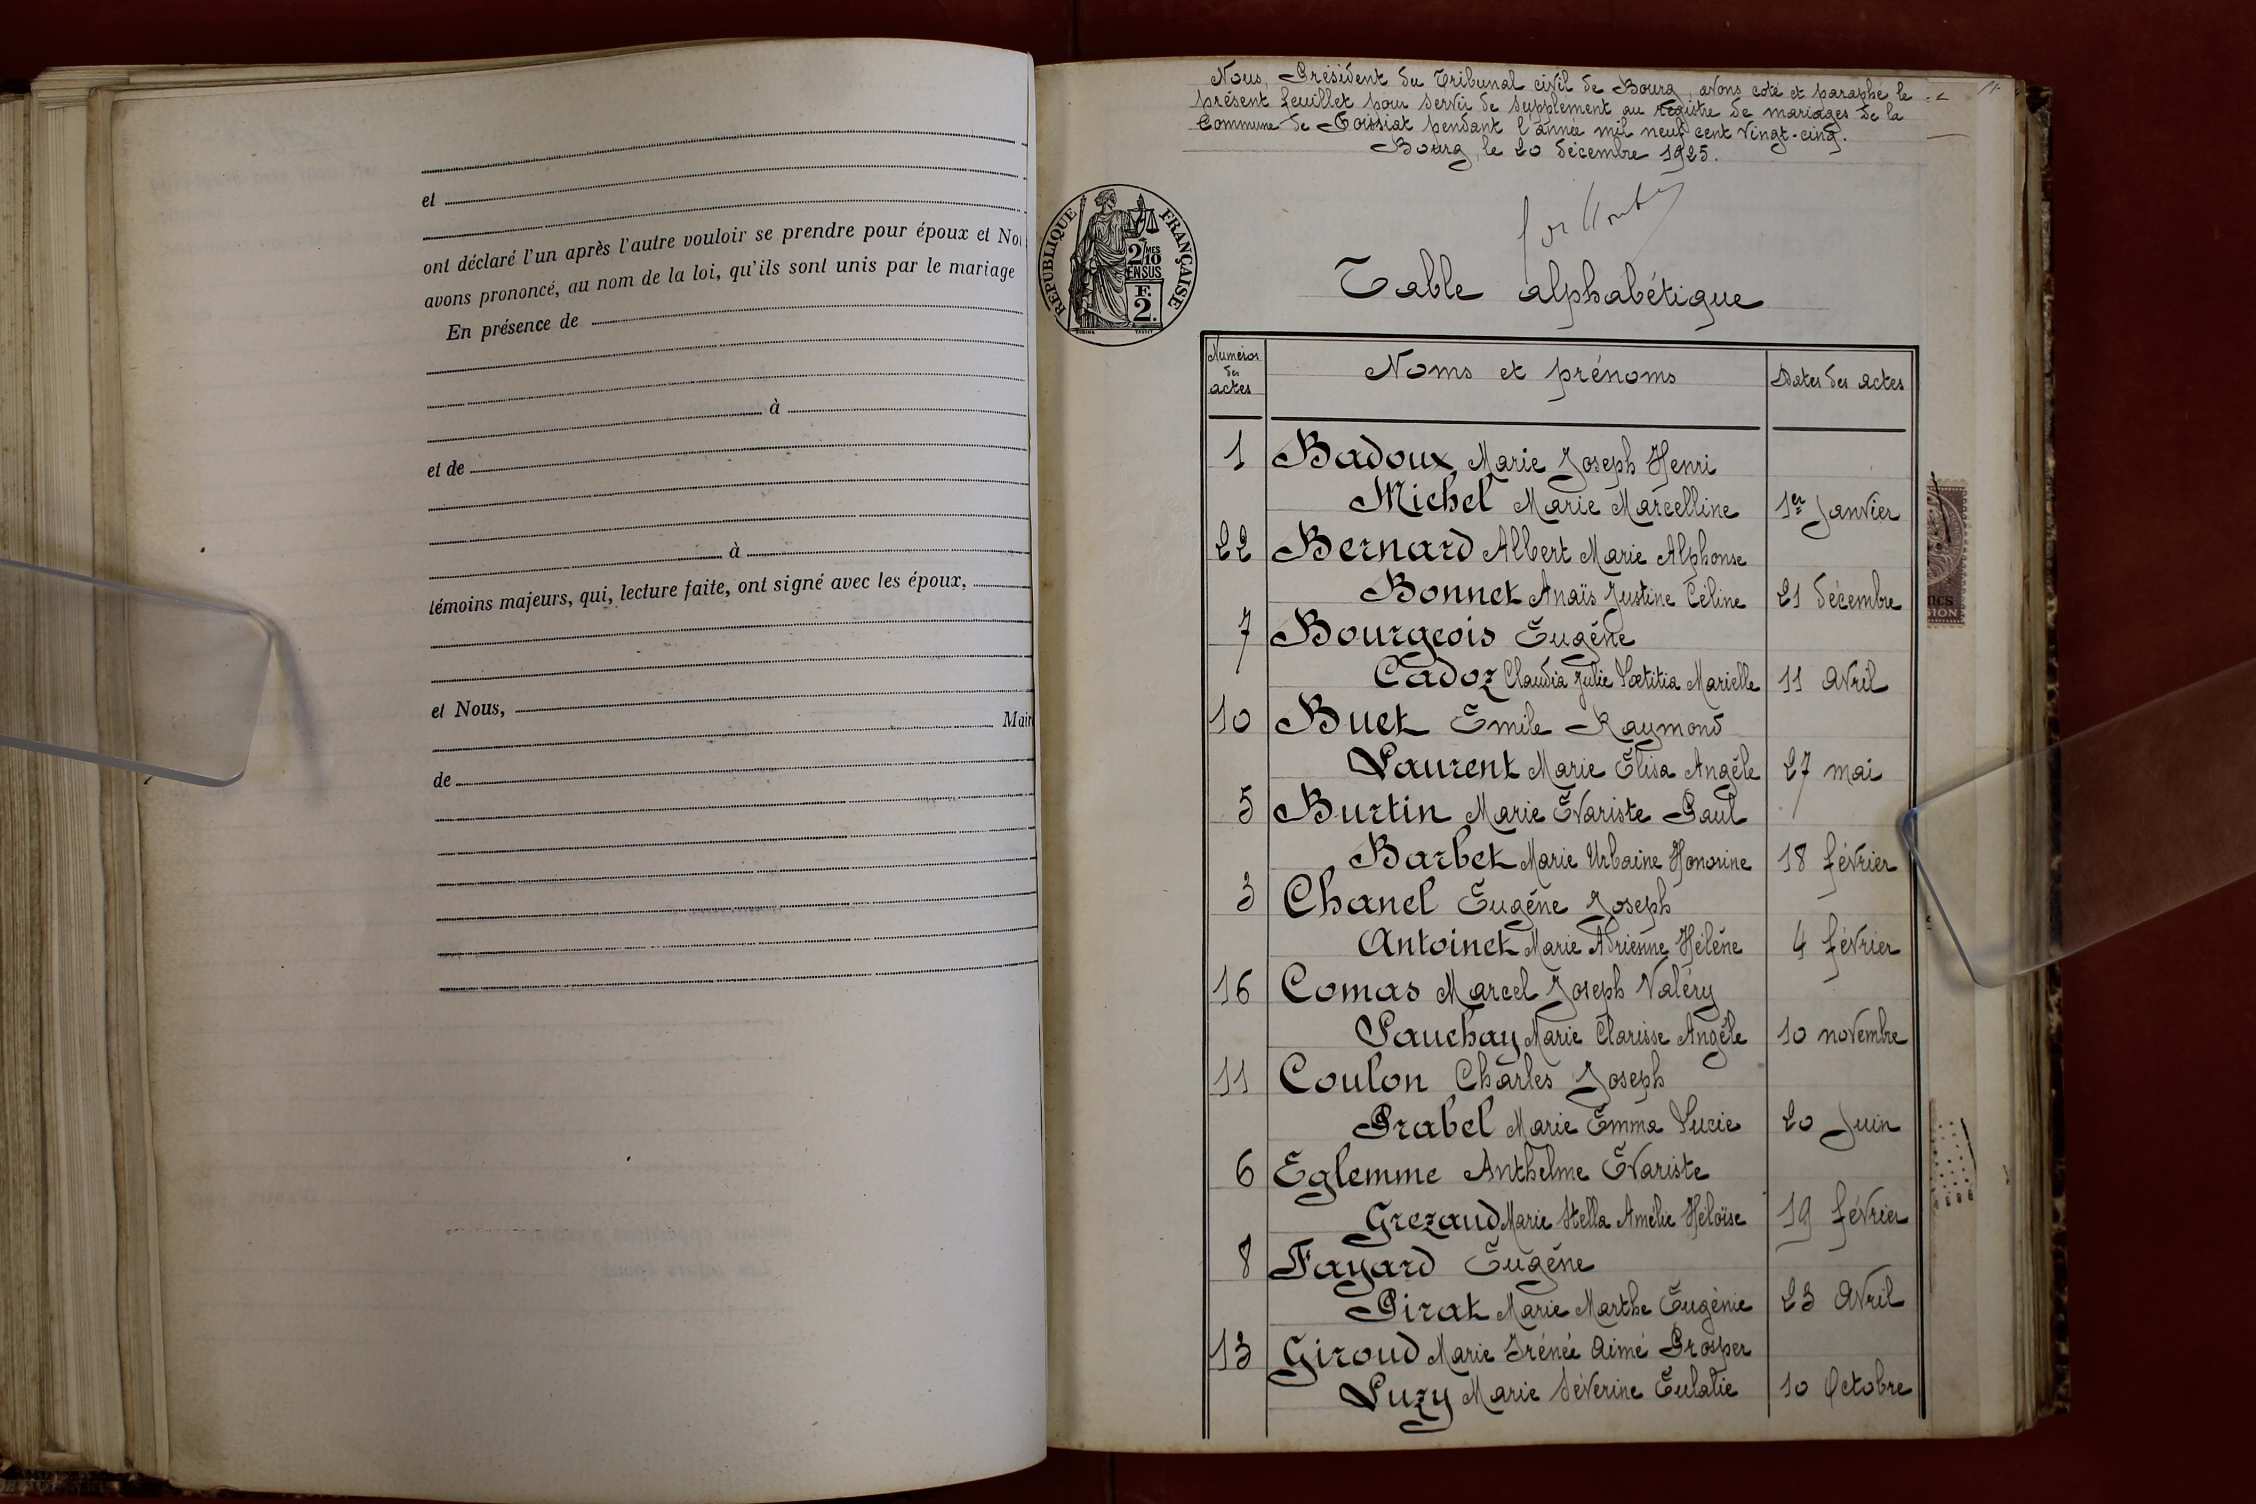 et
ont déclaré l'un après l'autre vouloir se prendre pour époux et Nou
avons prononcé, au nom de la loi, qu'ils sont unis par le mariage
En présence de
à
et de
à
témoins majeurs, qui, lecture faite, ont signé avec les époux,
et Nous,
Maire
de
Nous, Président du Tribunal civil de Bourg, avons coté et paraphe le
présent feuillet pour servir de supplément au registre de mariages de la
Commune de Coissiat pendant l'année mil neuf cent vingt-cinq.
Bourg, le 20 décembre 1925.
RÉPUBLIQUE FRANÇAISE
2/10 MES
EN SUS
F.
2.
Table alphabétique
Numéros des actes
Noms et prénoms
Dates des actes
1 Badoux Marie Joseph Henri
Michel Marie Marcelline 1er Janvier
22 Bernard Albert Marie Alphonse
Bonnet Anaïs Justine Céline 21 décembre
7 Bourgeois Eugène
Cadoz Claudia Julie Lœtitia Marielle 11 Avril
10 Buet Emile Raymond
Laurent Marie Élisa Angèle 27 mai
5 Burtin Marie Évariste Paul
Barbet Marie Urbaine Honorine 18 février
3 Chanel Eugène Joseph
Antoinet Marie Adrienne Hélène 4 février
16 Comas Marcel Joseph Valéry
Pauchay Marie Clarisse Angèle 10 novembre
11 Coulon Charles Joseph
Prabel Marie Emma Lucie 20 Juin
6 Eglemme Anthelme Évariste
Grezaud Marie Stella Amélie Héloïse 19 février
8 Fayard Eugène
Pirat Marie Marthe Eugénie 23 Avril
13 Giroud Marie Irénée Aimé Prosper
Luzy Marie Séverine Eulalie 10 Octobre